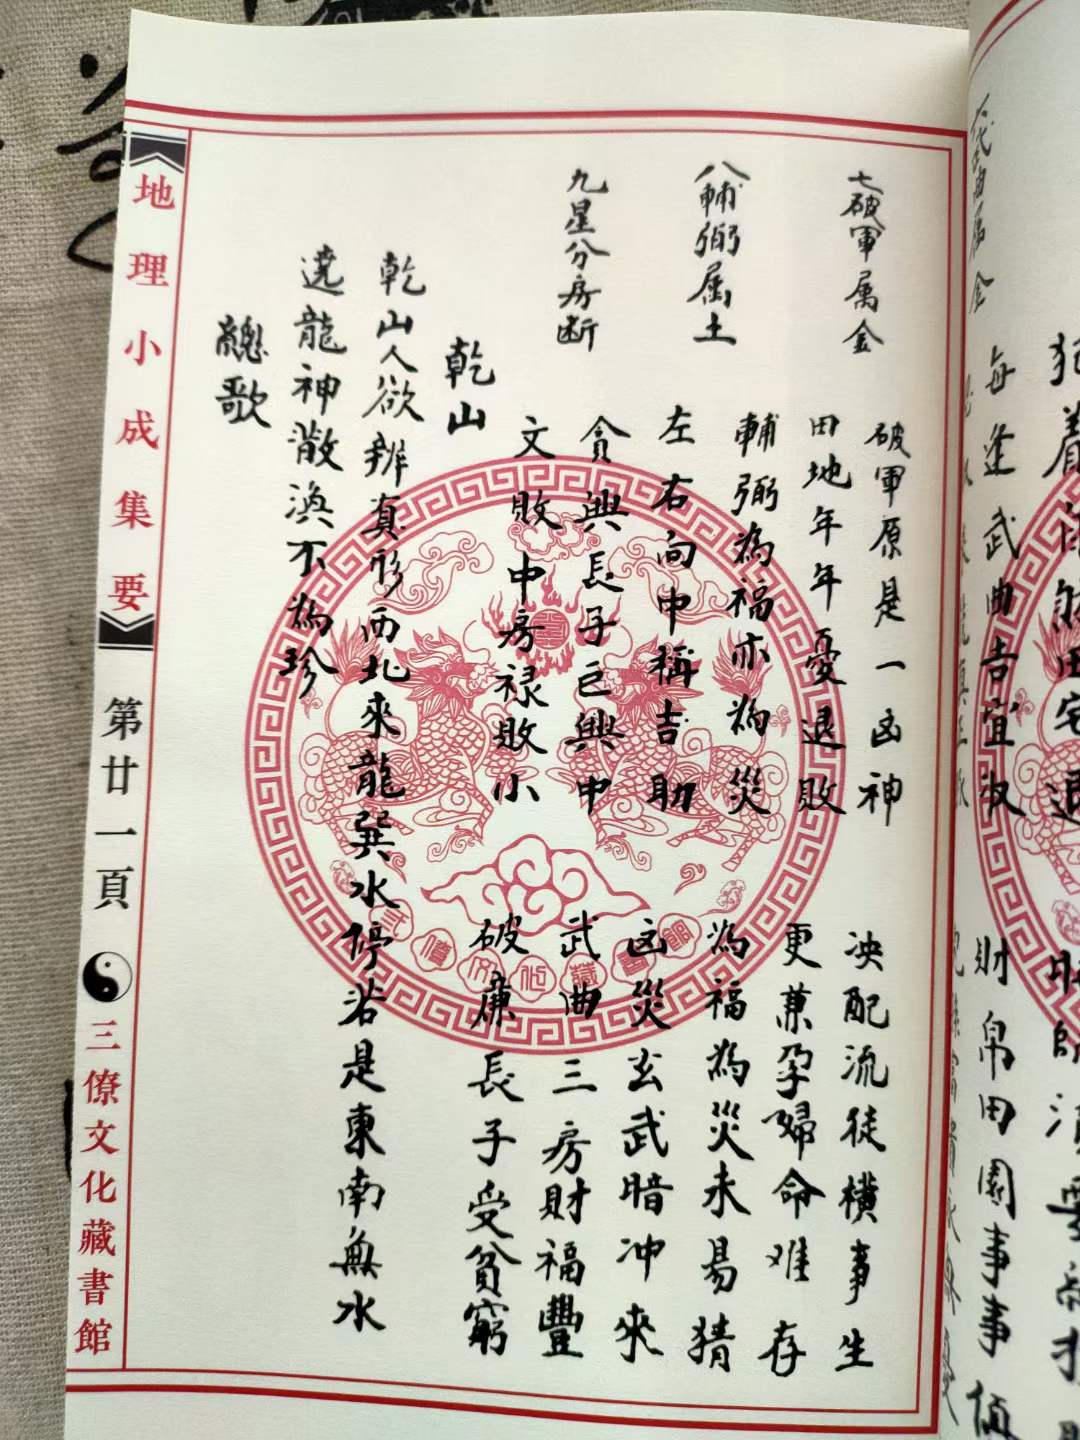 七破軍属金
破軍原是一凶神
决配流徒横事生
田地年年憂退敗
更兼孕婦命难存
八輔弼属土
輔弼為福亦為災
為福為災未易猜
左右向中稱吉助
凶災玄武暗冲來
九星分房断
貪興長子巳興中
武曲三房財福豐
文敗中房禄敗小
破廉長子受貧窮
乾山
乾山人欲辨真形西北來龍巽水停若是東南無水
遶龍神散渙不為珍
總歌
地理小成集要
第廿一頁
三僚文化藏書館
每逢武曲吉宜収
財帛田園事事